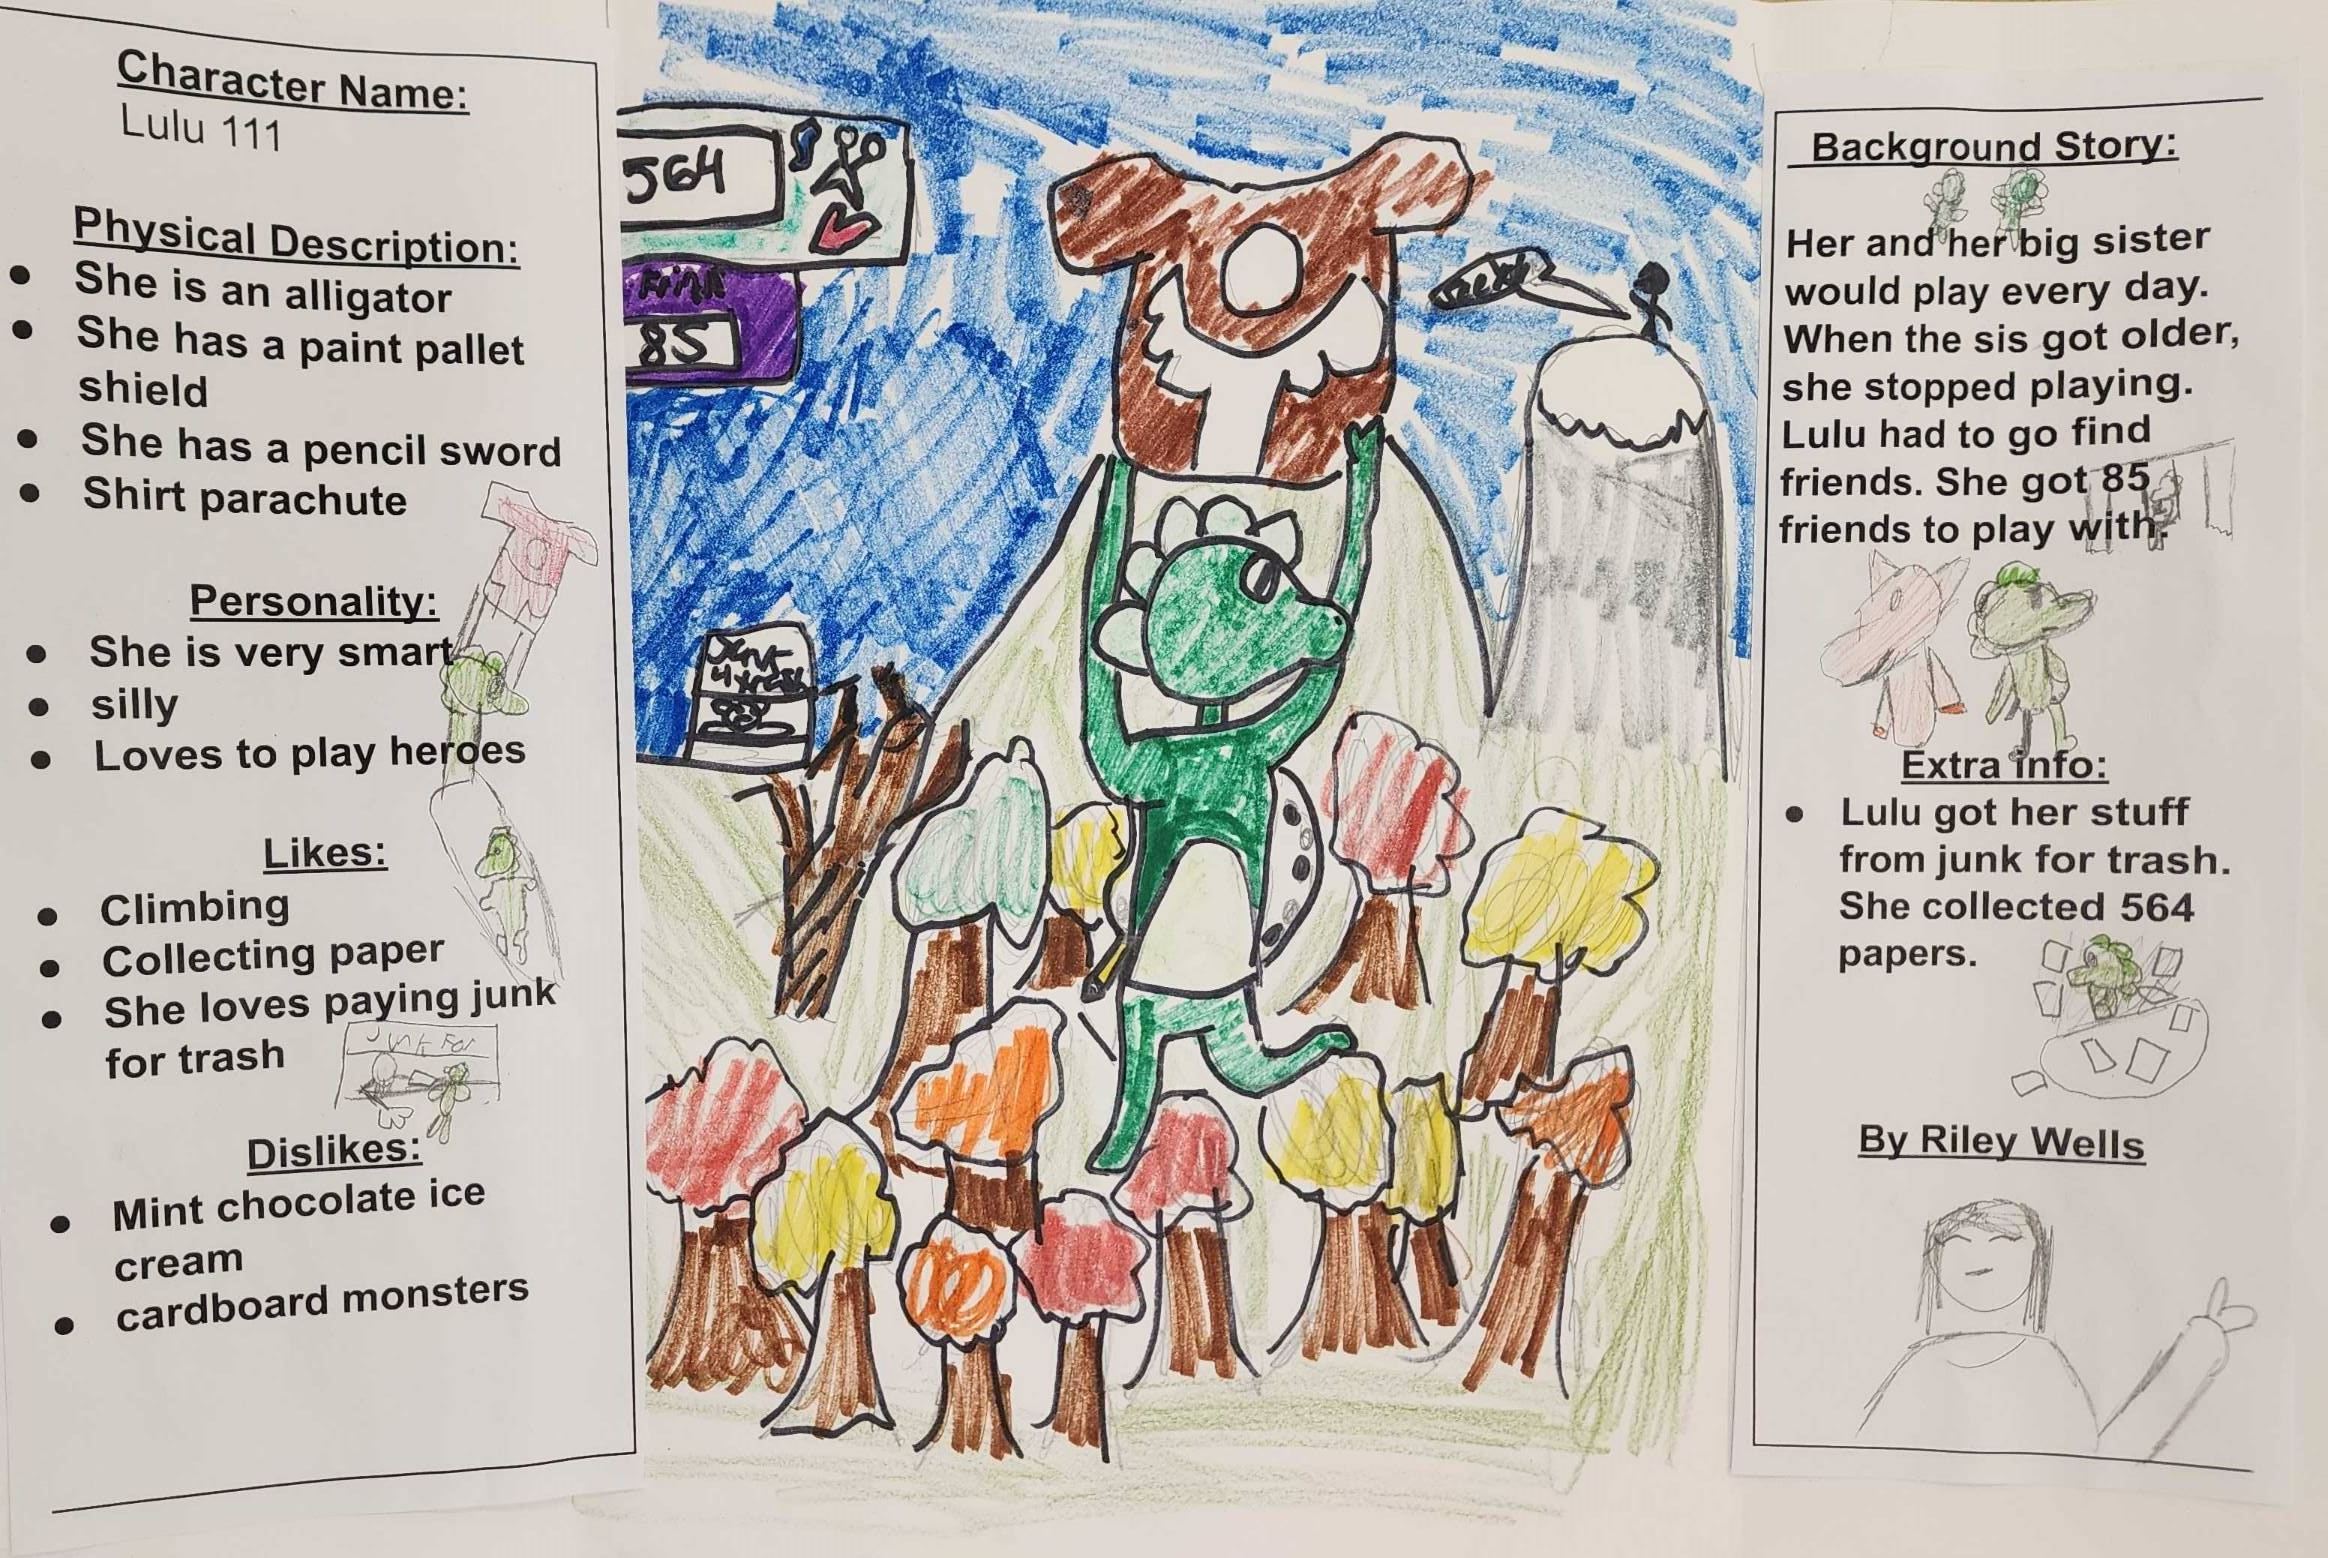 Character Name:
Lulu 111
Physical Description:
She is an alligator
She has a paint pallet
shield
She has a pencil sword
Shirt parachute
Personality:
She is very smart
silly
Loves to play heroes
Likes:
Climbing
Collecting paper
She loves paying junk
for trash
Junk For
Dislikes:
Mint chocolate ice
cream
cardboard monsters
564
85
Junk
4 trash
Background Story:
Her and her big sister
would play every day.
When the sis got older,
she stopped playing.
Lulu had to go find
friends. She got 85
friends to play with.
Extra info:
Lulu got her stuff
from junk for trash.
She collected 564
papers.
By Riley Wells